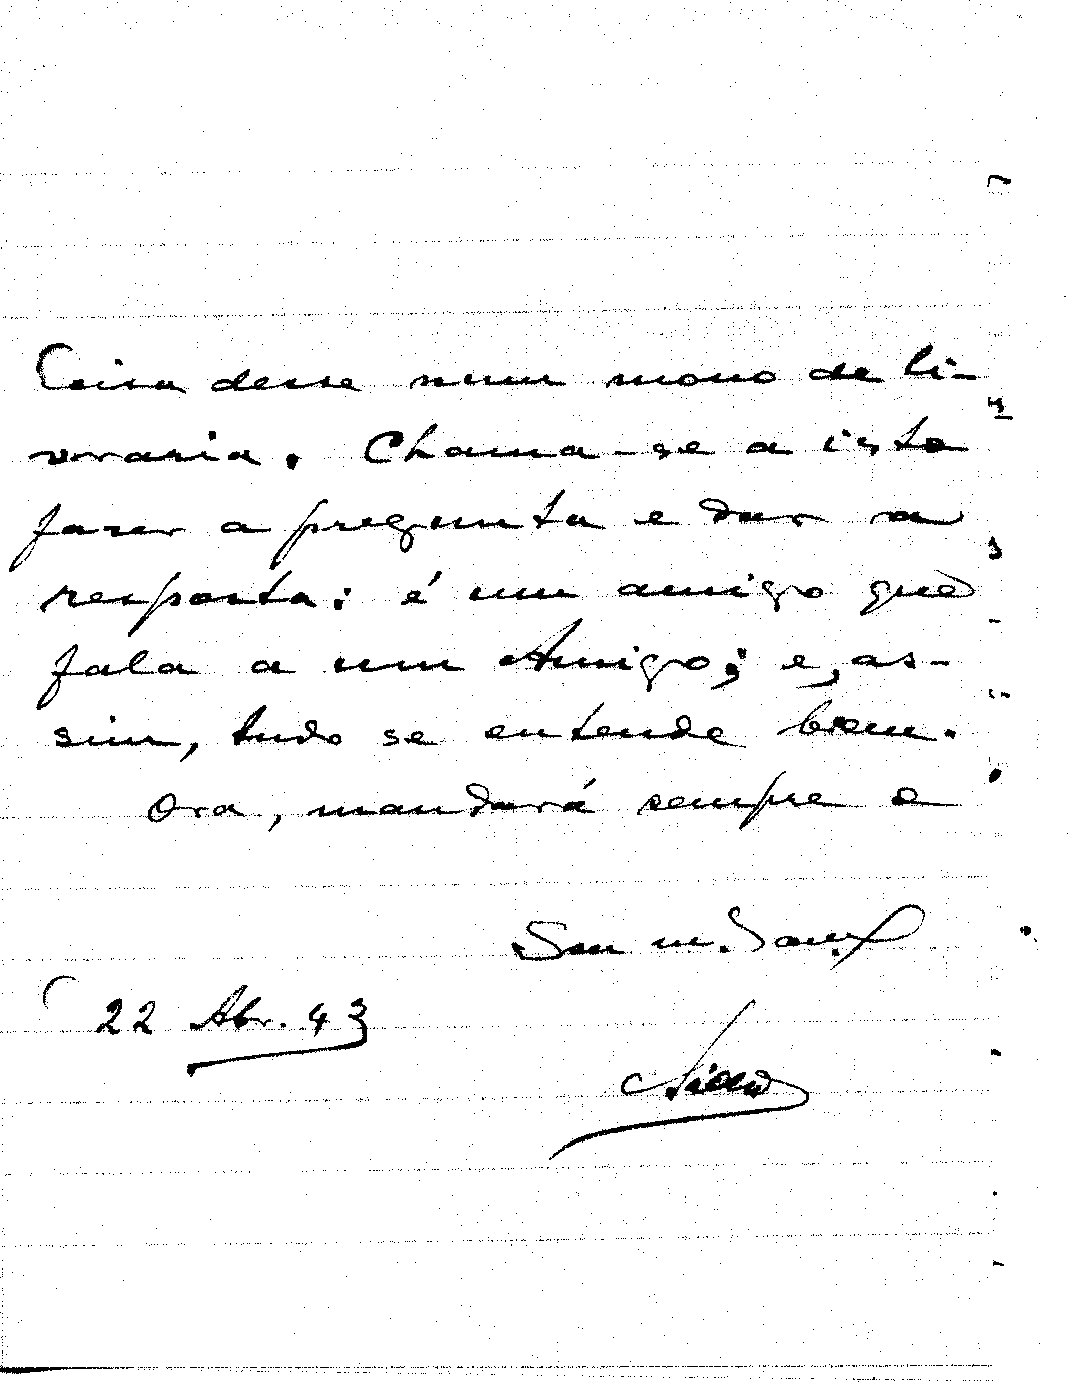 Coisa desse num mono de li-
vraria. Chama-se a isto
fazer a pregunta e dar a
resposta: é um amigo que
fala a um Amigo; e, as-
sim, tudo se entende bem.
Ora, mandará sempre o
Seu m.
22 Abr. 43